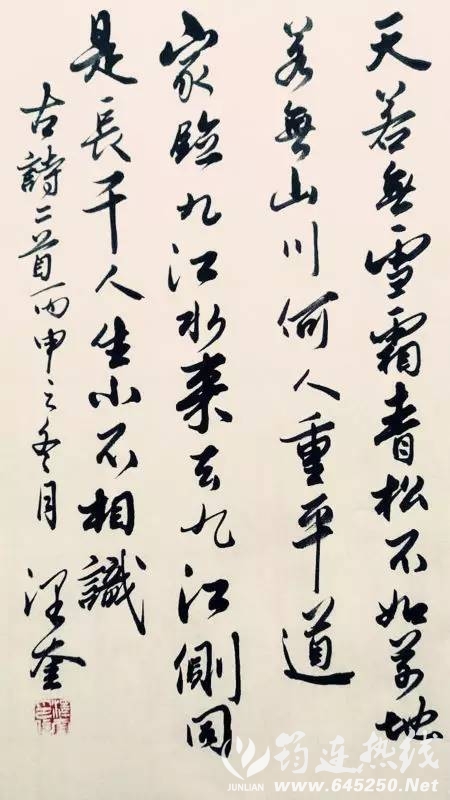 天若無雪霜青松不如草地
若無山川何人重平道
家臨九江水來去九江側同
是長干人生小不相識
古詩二首丙申之冬月
泽奎
筠连热线
JUNLIAN www.645250.Net